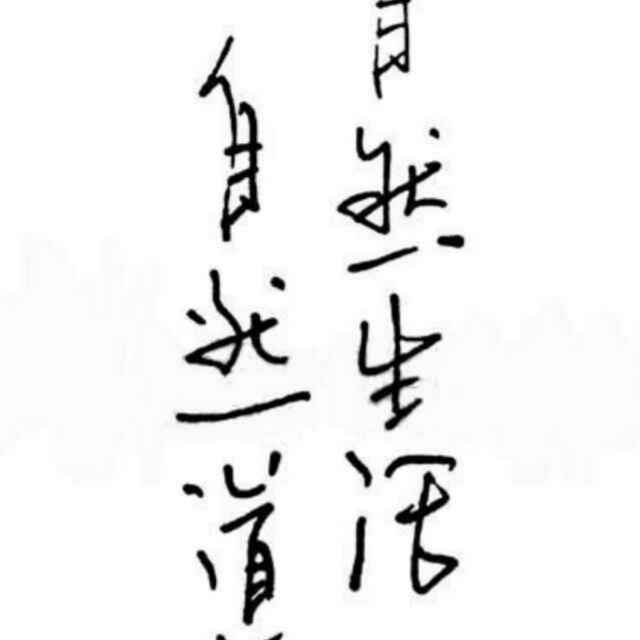 自然生活
自然道